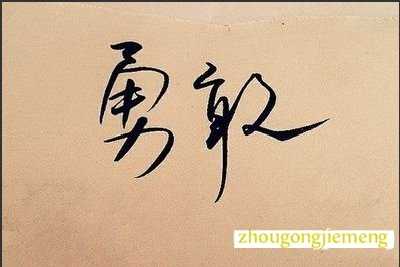 勇敢
zhougongjiemeng